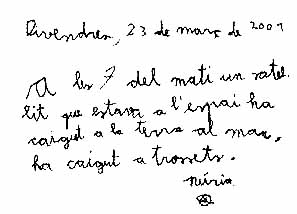 Divendres, 23 de març de 2001
A les 7 del mati un satel.
lit que estava a l'espai ha
caigut a la terra al mar,
ha caigut a trossets.
Núria